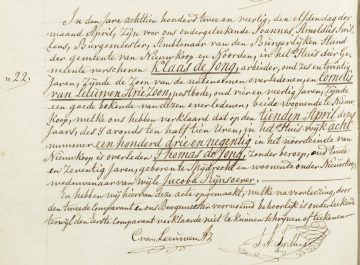 In den jare achtien honderd twee en veertig, den elfden dag der
maand April, zijn voor ons ondergeteekende Joannes Arnoldus
Burgemeester, Ambtenaar van den Burgerlijken Stand
der gemeente van Nieuwkoop en Noorden, in het Huis der Ge
n 22. meente verschenen Klaas de Jong, arbeider, oud zes en twintig
Jaren, zijnde de Zoon van de natenoemen overledenen, en Cornelis
van Leeuwen Arie Zoon, postbode, oud vier en veertig Jaren, Zijnde
een goede bekende van dezen overledenen, beide woonende te Nieuw
koop, welke ons hebben verklaard dat op den tienden April dezes
Jaars, des avonds ten half tien Uren, in het Huis wijk acht
nummer een honderd drie en negentig in het noordeinde van
Nieuwkoop is overleden Thomas de Jong, zonder beroep, oud twee
en Zeventig Jaren, geboren te en woonende onder Nieuwkoop,
weduwenaar van wijle Jacoba
En hebben wij hiervan deze acte opgemaakt, welke na voorlezing, door
den tweede Comparant en ons Burgemeester voornoemd behoorlijk is onderteekend
terwijl den eerste Comparant verklaarde niet te kunnen schrijven of teekenen
C van Leeuwen Az